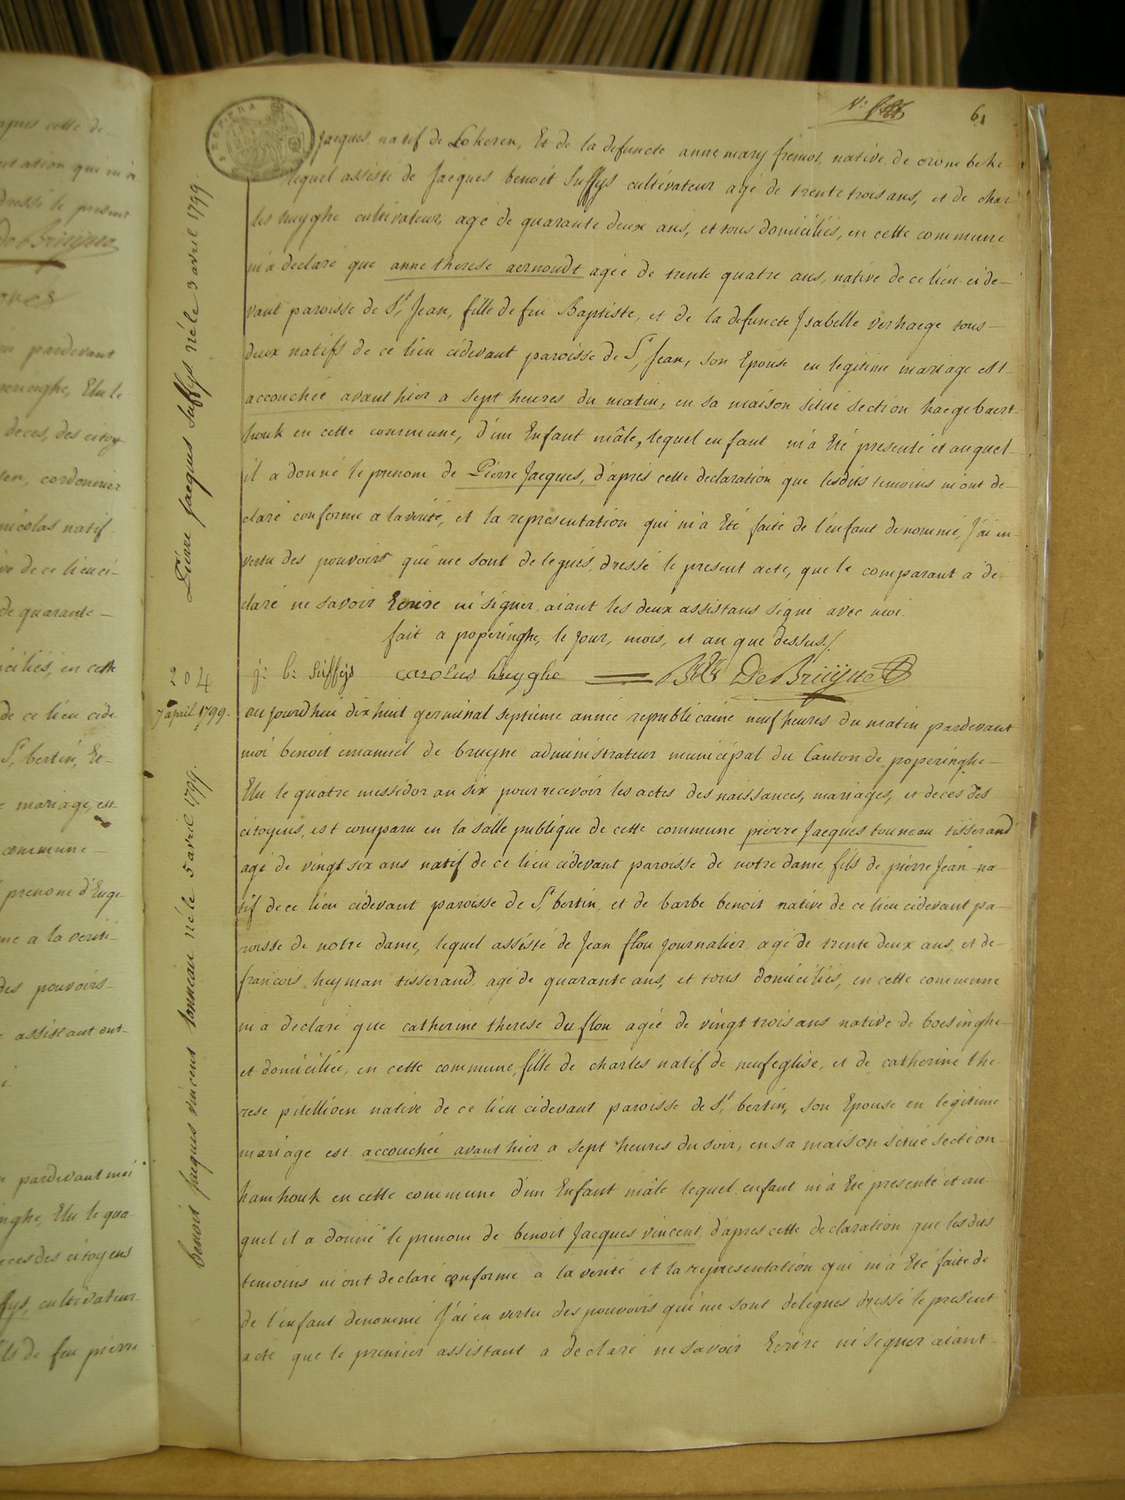 apres cette de-
tation qui m'a
dressé le present
De Bruijne
pardevant
peringhe, Elu le
deces, des citoy
cordonnier
nicolas natif
ve de ce lieu ci-
de quarante-
ciliés, en cette
de ce lieu cide
St bertin, Et-
mariage, est
commune-
prenom d'Euge
me a la verité-
des pouvoirs
assistant ont-
pardevant moi
inghe, Elu le qua
eces des citoyens
fys, cultivateur
ils de feu pierre
61
Pierre Jacques Suffys né le 3 avril 1799.
jacques natif de Lokeren, Et de la defuncte anne mary fremot, native de crombeke
lequel assisté de Jacques benoit Suffys cultivateur agé de trente trois ans, et de char
les huyghe cultivateur, agé de quarante deux ans, et tous domiciliés, en cette commune
m'a declaré que anne therese aernoudt agée de trente quatre ans, native de ce lieu cide-
vant paroisse de St Jean, fille de feu Baptiste, et de la defuncte Isabelle verhaege tous-
deux natifs de ce lieu cidevant paroisse de St Jean, son Epouse en legitime mariage est
accouchée avant hier a sept heures du matin, en sa maison située section haegebaert-
houk en cette commune, d'un Enfant mâle, lequel enfant m'a Eté presenté et auquel-
il a donné le prenom de Pierre Jacques, d'apres cette declaration que lesdits temoins m'ont de-
claré conforme a la verité, et la representation qui m'a Eté faite de l'enfant denommé, J'ai en
vertu des pouvoirs qui me sont delegués, dressé le present acte, que le comparant a de-
claré ne savoir Ecrire ni signer, aiant les deux assistans signé avec moi.
fait a poperinghe, le jour, mois, et an que dessus/.
j: b: Suffys carolus huyghe BE De Bruijne
204
7 april 1799.
benoit jacques vincent tonneau né le 5 avril 1799.
au jourdhui dix huit germinal septieme année republicaine neuf heures du matin pardevant
moi benoit emanuel de bruyne administrateur municipal du Canton de poperinghe-
Elu le quatre messidor an six pour recevoir les actes des naissances, mariages, et deces des
citoyens, est comparu en la salle publique de cette commune pierre Jacques tonneau tisserand
agé de vingt six ans natif de ce lieu cidevant paroisse de notre dame, fils de pierre Jean na-
tif de ce lieu cidevant paroisse de St bertin, et de barbe benoit native de ce lieu cidevant pa-
roisse de notre dame, lequel assisté de Jean flou journalier agé de trente deux ans, et de-
francois heyman tisserand, agé de quarante ans, et tous domiciliés, en cette commune
m'a declaré que catherine therese du flou agée de vingt trois ans native de boesinghe-
et domiciliée, en cette commune, fille de charles natif de neufeglise, et de catherine the
rese pitellioen native de ce lieu cidevant paroisse de St bertin, son Epouse en legitime
mariage est accouchée avant hier a sept heures du soir, en sa maison située section-
hamhouk en cette commune d'un Enfant mâle lequel enfant m'a Eté presenté et au-
quel il a donné le prenom de benoit Jacques vincent, d'apres cette declaration que lesdits
temoins m'ont declaré conforme a la verité et la representation qui m'a Eté faite de
de l'enfant denommé J'ai en vertu des pouvoirs qui me sont delegués dressé le present
acte que le premier assistant a declaré ne savoir Ecrire ni signer aiant-